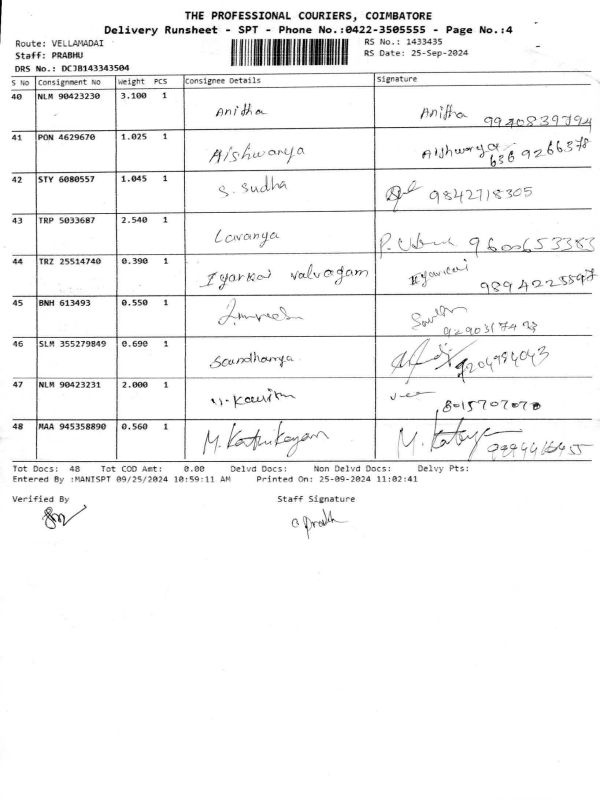 THE PROFESSIONAL COURIERS, COIMBATORE
Delivery Runsheet - SPT - Phone No.:0422-3505555 - Page No.:4
Route: VELLAMADAI RS No.: 1433435
Staff: PRABHU RS Date: 25-Sep-2024
DRS No.: DCJB143343504
S No Consignment No Weight PCS Consignee Details Signature
40 NLM 90423230 3.100 1 Anitha Anitha
41 PON 4629670 1.025 1 Aishwarya Aishwarya 636 9266378
42 STY 6080557 1.045 1 S. Sudha 9842718305
43 TRP 5033687 2.540 1 Lavanya 9600653383
44 TRZ 25514740 0.390 1 Iyarkai valvagam Iyarkai
45 BNH 613493 0.550 1
46 SLM 355279849 0.690 1 Soundhanya 9204984043
47 NLM 90423231 2.000 1 8015707070
48 MAA 945358890 0.560 1
Tot Docs: 48 Tot COD Amt: 0.00 Delvd Docs: Non Delvd Docs: Delvy Pts:
Entered By :MANISPT 09/25/2024 10:59:11 AM Printed On: 25-09-2024 11:02:41
Verified By Staff Signature